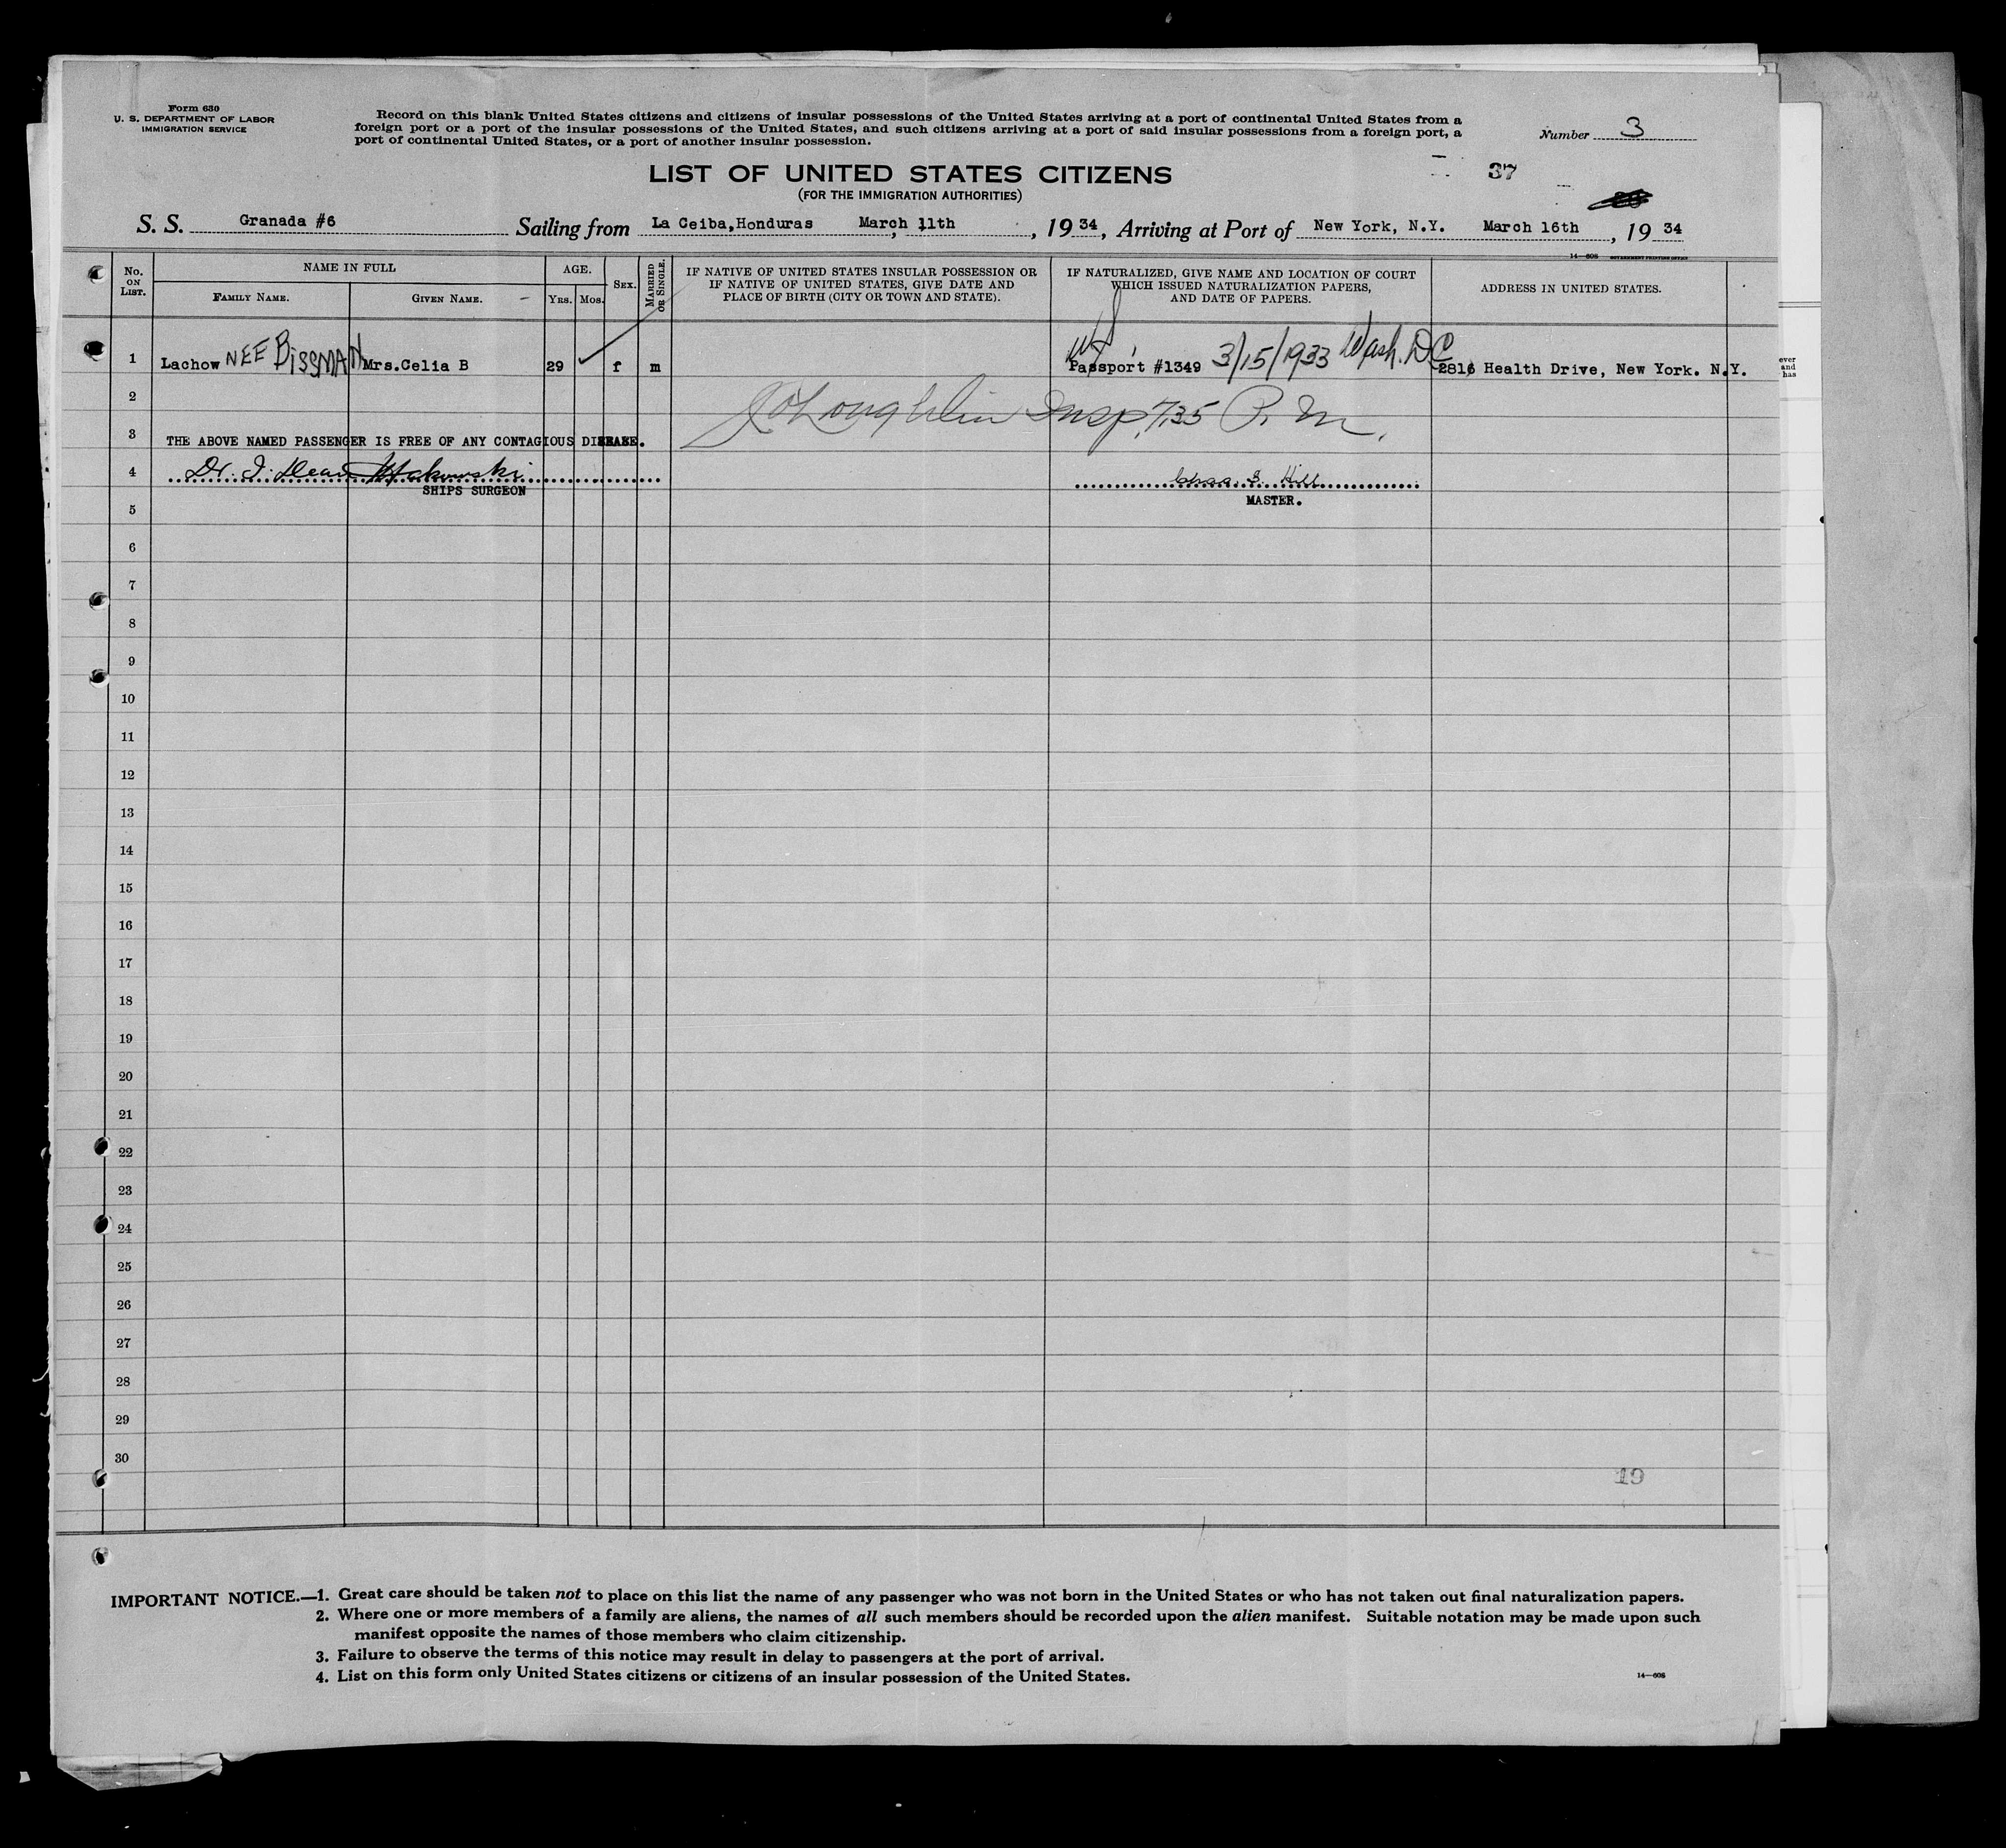 Form 630
U. S. DEPARTMENT OF LABOR
IMMIGRATION SERVICE
Record on this blank United States citizens and citizens of insular possessions of the United States arriving at a port of continental United States from a
foreign port or a port of the insular possessions of the United States, and such citizens arriving at a port of said insular possessions from a foreign port, a
port of continental United States, or a port of another insular possession.
Number 3
LIST OF UNITED STATES CITIZENS
37
(FOR THE IMMIGRATION AUTHORITIES)
S. S. Granada #6 Sailing from La Ceiba,Honduras March 11th, 1934, Arriving at Port of New York, N.Y. March 16th, 1934
14—608 GOVERNMENT PRINTING OFFICE
No. ON LIST.
NAME IN FULL
FAMILY NAME.
GIVEN NAME.
AGE.
YRS.
MOS.
SEX.
MARRIED OR SINGLE.
IF NATIVE OF UNITED STATES INSULAR POSSESSION OR
IF NATIVE OF UNITED STATES, GIVE DATE AND
PLACE OF BIRTH (CITY OR TOWN AND STATE).
IF NATURALIZED, GIVE NAME AND LOCATION OF COURT
WHICH ISSUED NATURALIZATION PAPERS,
AND DATE OF PAPERS.
ADDRESS IN UNITED STATES.
1 Lachow NEE BISSMAN Mrs.Celia B 29 f m Passport #1349 3/15/1933 Wash. D C 2816 Health Drive, New York. N.Y.
ever
and
has
2 Insp. 7.35 P. M.
3 THE ABOVE NAMED PASSENGER IS FREE OF ANY CONTAGIOUS DISEASE.
4 Dr. I. Hill
SHIPS SURGEON
MASTER.
5
6
7
8
9
10
11
12
13
14
15
16
17
18
19
20
21
22
23
24
25
26
27
28
29
30
19
IMPORTANT NOTICE.—1. Great care should be taken not to place on this list the name of any passenger who was not born in the United States or who has not taken out final naturalization papers.
2. Where one or more members of a family are aliens, the names of all such members should be recorded upon the alien manifest. Suitable notation may be made upon such
manifest opposite the names of those members who claim citizenship.
3. Failure to observe the terms of this notice may result in delay to passengers at the port of arrival.
4. List on this form only United States citizens or citizens of an insular possession of the United States.
14—608